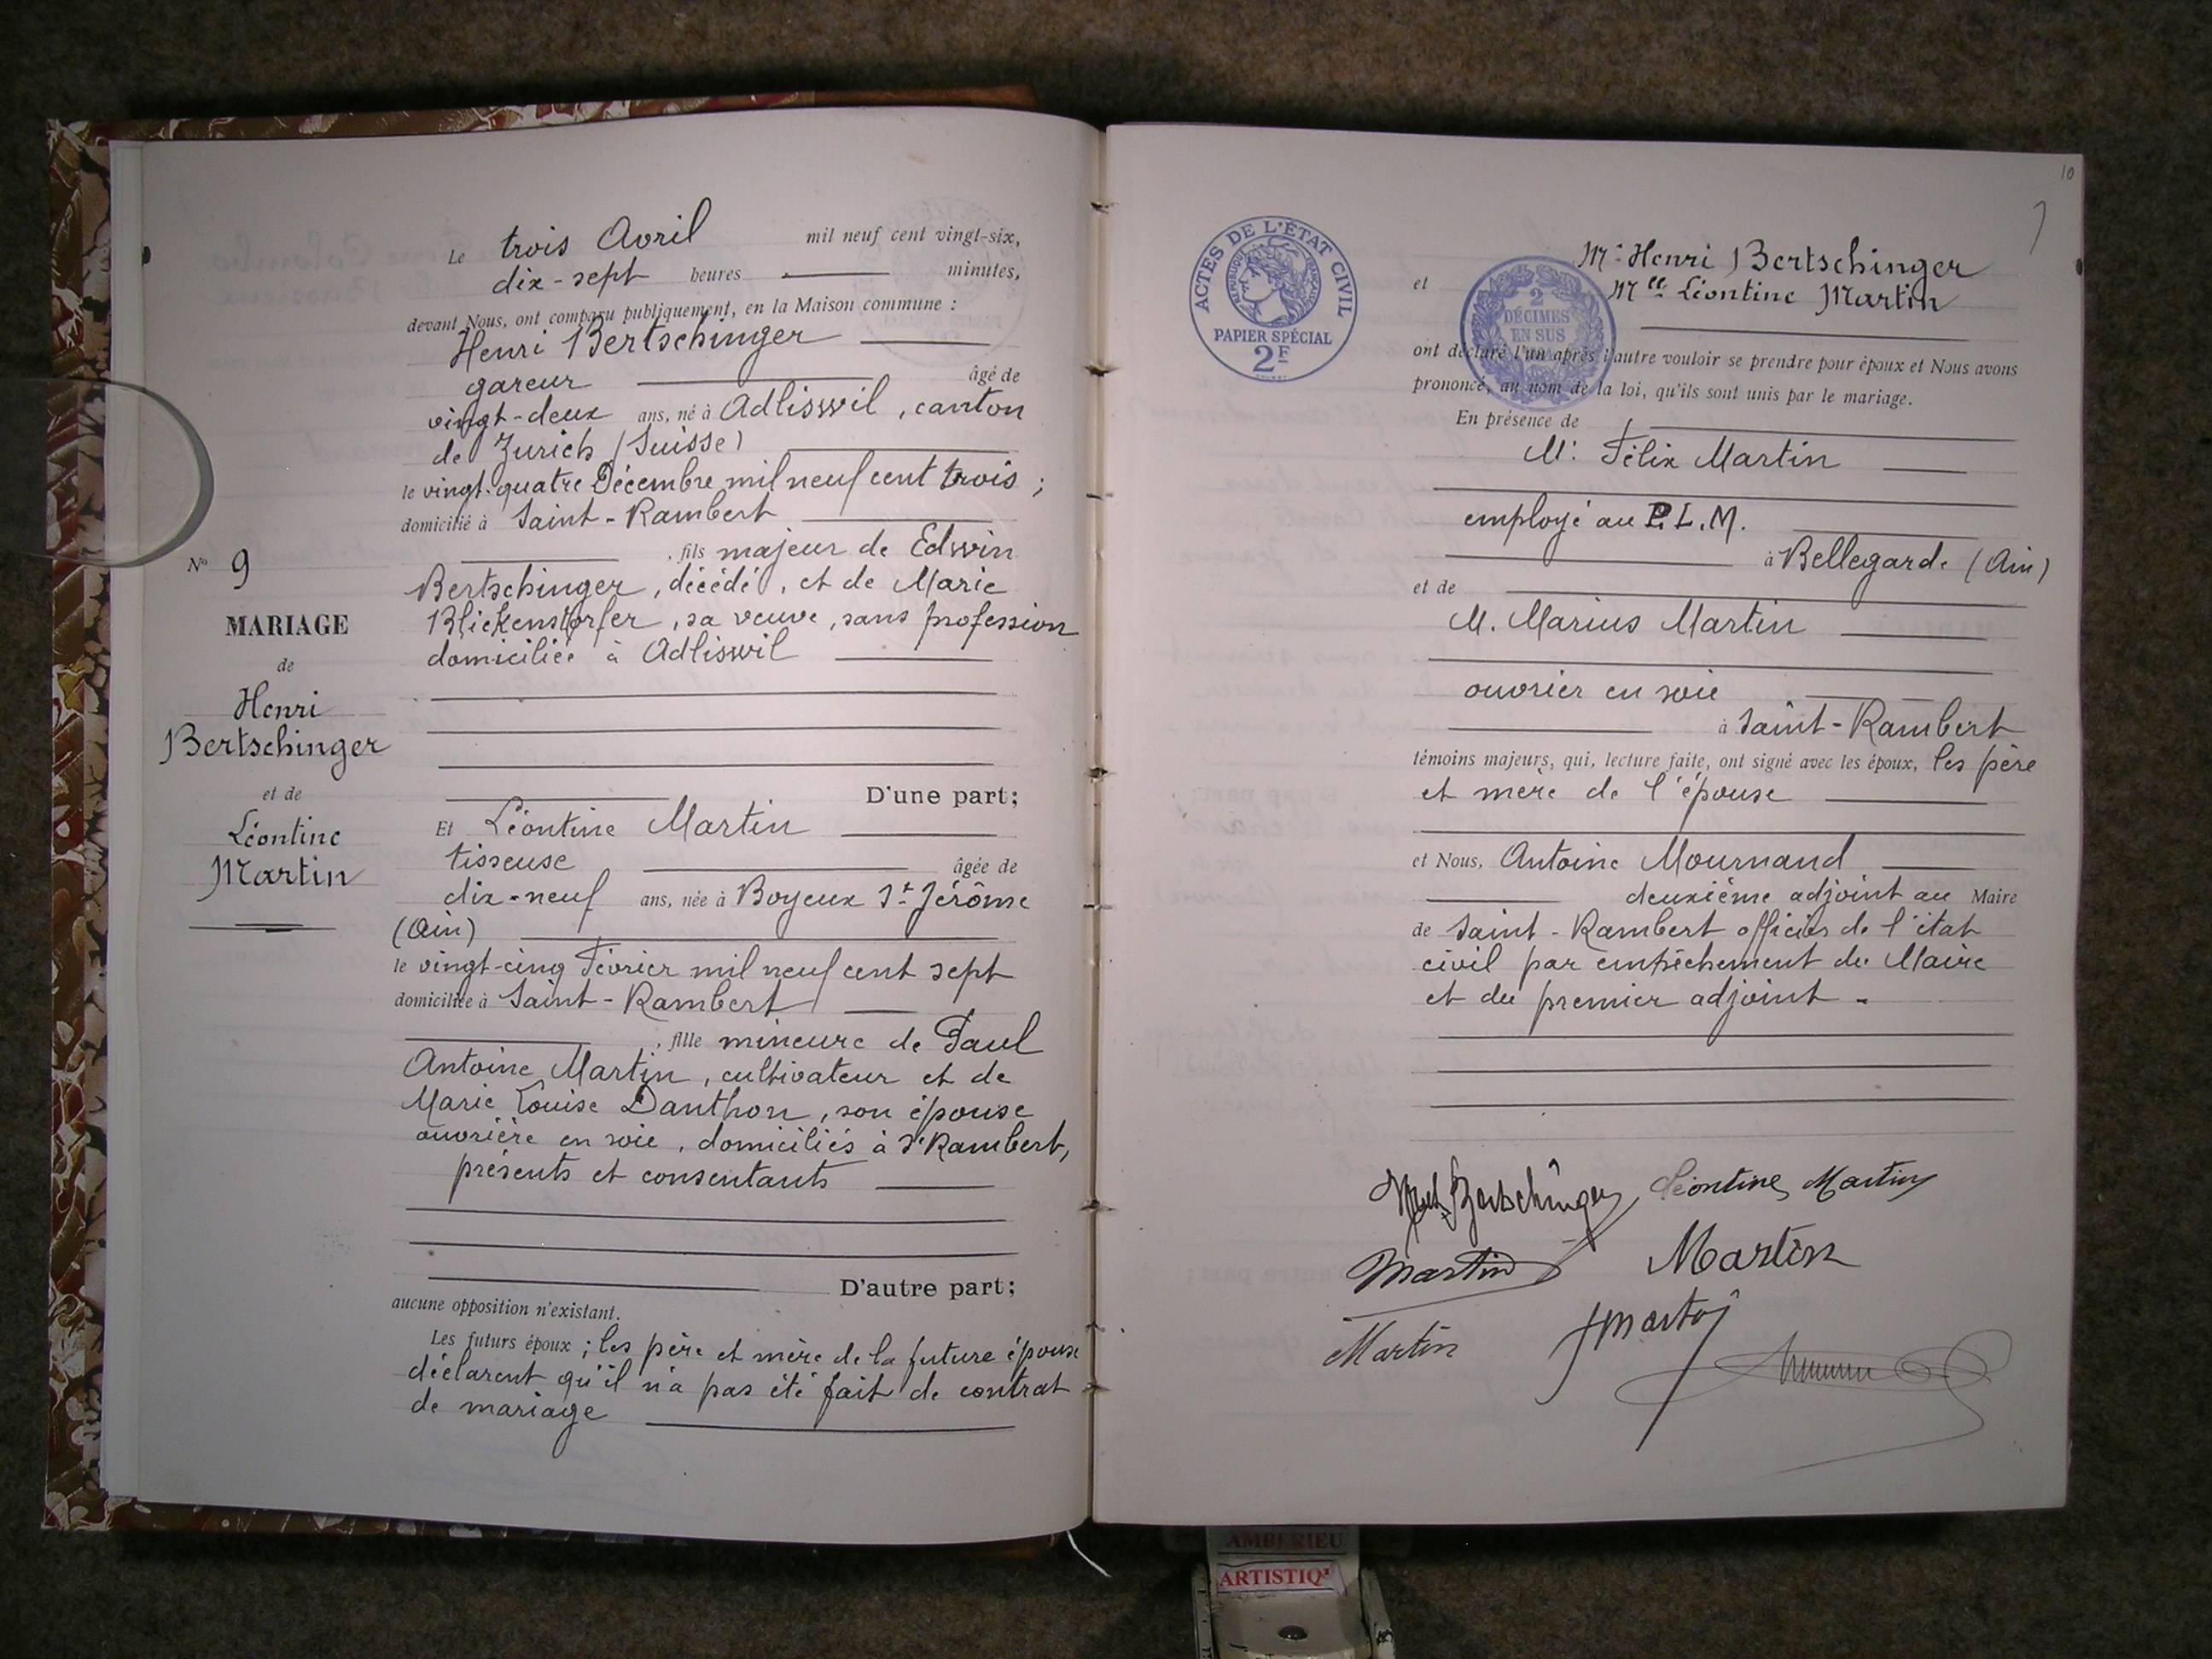 Le trois Avril mil neuf cent vingt-six,
dix-sept heures minutes,
devant Nous, ont comparu publiquement, en la Maison commune :
Henri Bertschinger
gareur âgé de
vingt-deux ans, né à Adliswil, canton
de Zurich (Suisse)
le vingt-quatre Décembre mil neuf cent trois ;
domicilié à Saint-Rambert
, fils majeur de Edwin
Bertschinger, décédé, et de Marie
Blickenstorfer, sa veuve, sans profession
domiciliée à Adliswil
D'une part;
Et Léontine Martin
tisseuse âgée de
dix-neuf ans, née à Boyeux St Jérôme
(Ain)
le vingt-cinq Février mil neuf cent sept
domiciliée à Saint-Rambert
, fille mineure de Paul
Antoine Martin, cultivateur et de
Marie Louise Danthon, son épouse
ouvrière en soie, domiciliés à St Rambert,
présents et consentants
D'autre part;
aucune opposition n'existant.
Les futurs époux ; les père et mère de la future épouse
déclarent qu'il n'a pas été fait de contrat
de mariage
No 9
MARIAGE
de
Henri
Bertschinger
et de
Léontine
Martin
10
7
ACTES DE L'ÉTAT CIVIL
RÉPUBLIQUE FRANÇAISE
PAPIER SPÉCIAL
2F
2
DÉCIMES
EN SUS
Mr Henri Bertschinger
et Mlle Léontine Martin
ont déclaré l'un après l'autre vouloir se prendre pour époux et Nous avons
prononcé, au nom de la loi, qu'ils sont unis par le mariage.
En présence de
Mr Félix Martin
employé au P.L.M.
à Bellegarde (Ain)
et de
M. Marius Martin
ouvrier en soie
à Saint-Rambert
témoins majeurs, qui, lecture faite, ont signé avec les époux, les père
et mère de l'épouse
et Nous, Antoine Mournaud
deuxième adjoint au Maire
de Saint-Rambert officier de l'état
civil par empêchement du Maire
et du premier adjoint.
Bertschinger Léontine Martin
Martin Martin
Martin
AMBERIEU
ARTISTIQ